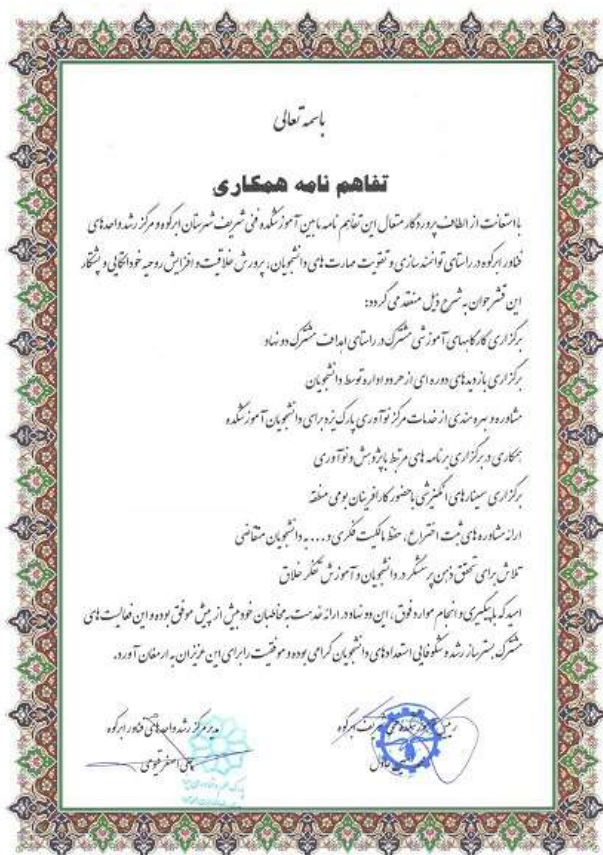 باسمه تعالی
تفاهم نامه همکاری
با استعانت از الطاف پروردگار متعال این تفاهم نامه مابین آموزشکده فنی شریف شهرستان ابرکوه و مرکز رشد واحدهای
فناور ابرکوه در راستای توانمندسازی و تقویت مهارت های دانشجویان، پرورش خلاقیت و افزایش روحیه خوداتکایی و پشتکار
این قشر جوان به شرح ذیل منعقد می گردد:
برگزاری کارگاههای آموزشی مشترک در راستای اهداف مشترک دو نهاد
برگزاری بازدیدهای دوره ای از هر دو اداره توسط دانشجویان
مشاوره و بهره مندی از خدمات مرکز نوآوری پارک یزد برای دانشجویان آموزشکده
همکاری در برگزاری برنامه های مرتبط با پژوهش و نوآوری
برگزاری سمینارهای انگیزشی با حضور کارآفرینان بومی منطقه
ارائه مشاوره های ثبت اختراع، حفظ مالکیت فکری و.... به دانشجویان متقاضی
تلاش برای تحقق ذهن پرسشگر در دانشجویان و آموزش تفکر خلاق
امید که با پیگیری و انجام موارد فوق، این دو نهاد در ارائه خدمت به مخاطبان خود بیش از پیش موفق بوده و این فعالیت های
مشترک بسترساز رشد و شکوفایی استعدادهای دانشجویان گرامی بوده و موفقیت را برای این عزیزان به ارمغان آورد.
رئیس آموزشکده فنی شریف ابرکوه
مدیر مرکز رشد واحدهای فناور ابرکوه
علی اصغر قیومی